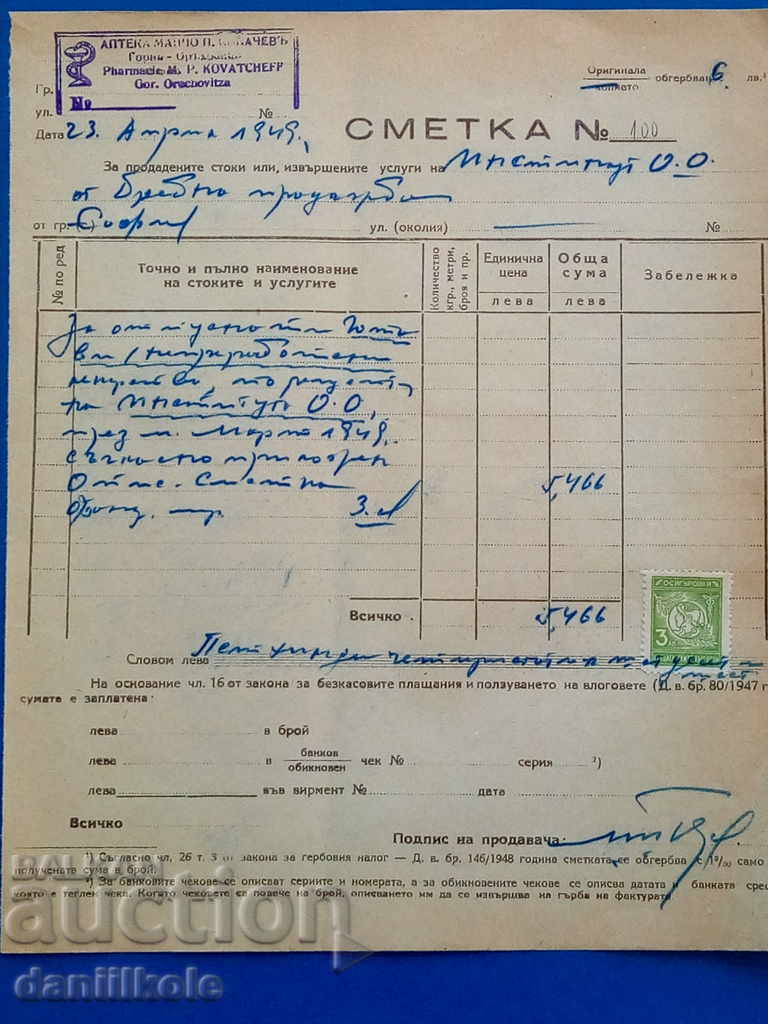 АПТЕКА МАНЧО П. КОВАЧЕВЪ
Горна-Орѣховица
Pharmacie M. P. KOVATCHEFF
Gor. Orechovitza
№
Гр.
ул. №
Оригинала
копието
обгербван 6 лв.¹
Дата 23 Април 1949 г.
СМЕТКА № 100
За продадените стоки или, извършените услуги на Институт О.О.
от Дребна продажба
от гр. (с) София ул. (околия) — №
№ по ред
Точно и пълно наименование
на стоките и услугите
Количество
кгр., метри,
броя и пр.
Единична
цена
лева
Обща
сума
лева
Забележка
За отпуснати
лекарства, по рецепти
на Институт О.О,
през м. Март 1949 г.
Сметка 5,466
3. лв
Всичко 5,466
ОСИГУРОВКИ
3
Словом лева Пет хиляди четиристотин шестдесет и
шест
На основание чл. 16 от закона за безкасовите плащания и ползуването на влоговете (Д. в. бр. 80/1947 г
сумата е заплатена:
лева в брой
лева в банков
обикновен чек № серия ²)
лева във вирмент № дата
Всичко
Подпис на продавача:
¹) Съгласно чл, 26 т. 3 от закона за гербовия налог — Д. в. бр. 146/1948 година сметката се обгербва с 1⁰/₀₀ само
получената сума в брой.
²) За банковите чекове се описват сериите и номерата, а за обикновените чекове се описва датата и банката сре
която е теглен чека. Когато чековете са повече на брой, описването им да се извършва на гърба на фактурата
BALKAN
auction
daniilkole